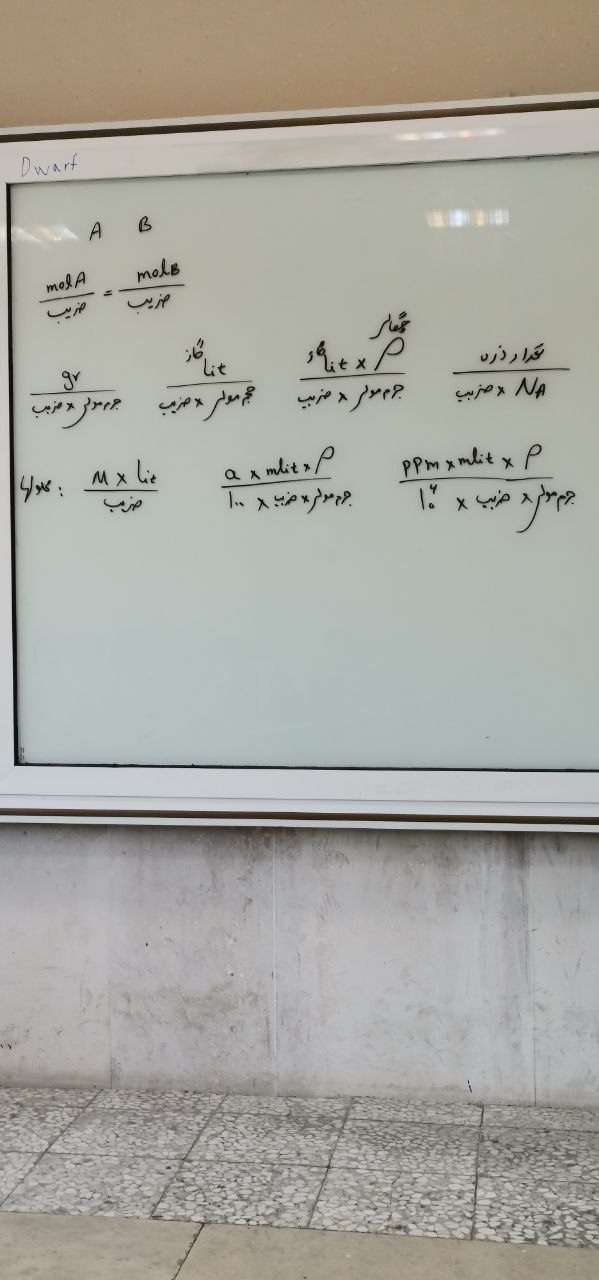 Dwarf
A B
molA / ضریب = molB / ضریب
gr / جرم مولی × ضریب    گاز lit / حجم مولی × ضریب    گاز lit × ρ چگالی / جرم مولی × ضریب    تعداد ذره / ضریب × NA
محلولها : M × lit / ضریب    a × mlit × ρ / ۱۰۰ × ضریب × جرم مولی    ppm × mlit × ρ / ۱۰^۶ × ضریب × جرم مولی